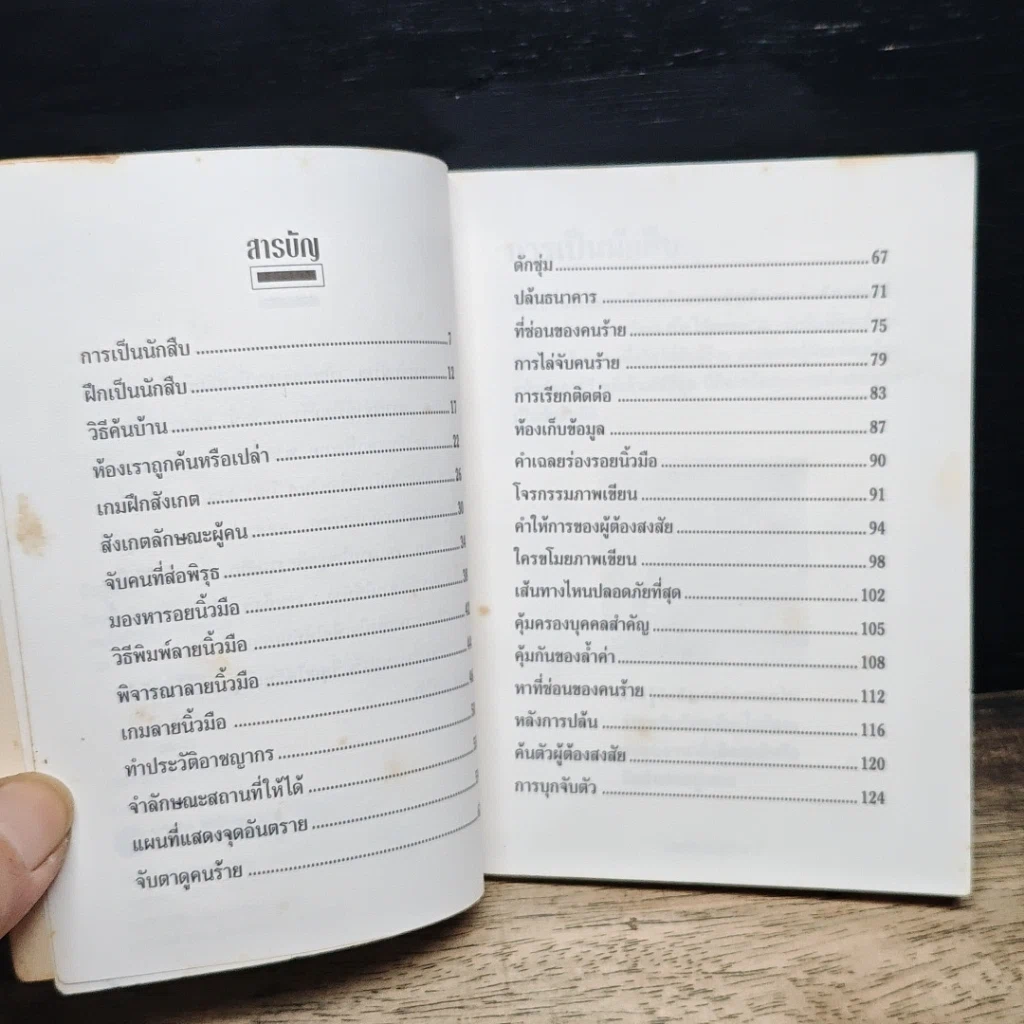 สารบัญ
การเป็นนักสืบ ........ 7
ฝึกเป็นนักสืบ ........ 12
วิธีค้นบ้าน ........ 17
ห้องเราถูกค้นหรือเปล่า ........ 22
เกมฝึกสังเกต ........ 26
สังเกตลักษณะผู้คน ........ 30
จับคนที่ส่อพิรุธ ........ 34
มองหารอยนิ้วมือ ........ 38
วิธีพิมพ์ลายนิ้วมือ ........ 42
พิจารณาลายนิ้วมือ ........ 44
เกมลายนิ้วมือ ........
ทำประวัติอาชญากร ........
จำลักษณะสถานที่ให้ได้ ........
แผนที่แสดงจุดอันตราย ........
จับตาดูคนร้าย ........
ดักซุ่ม ........ 67
ปล้นธนาคาร ........ 71
ที่ซ่อนของคนร้าย ........ 75
การไล่จับคนร้าย ........ 79
การเรียกติดต่อ ........ 83
ห้องเก็บข้อมูล ........ 87
คำเฉลยร่องรอยนิ้วมือ ........ 90
โจรกรรมภาพเขียน ........ 91
คำให้การของผู้ต้องสงสัย ........ 94
ใครขโมยภาพเขียน ........ 98
เส้นทางไหนปลอดภัยที่สุด ........ 102
คุ้มครองบุคคลสำคัญ ........ 105
คุ้มกันของล้ำค่า ........ 108
หาที่ซ่อนของคนร้าย ........ 112
หลังการปล้น ........ 116
ค้นตัวผู้ต้องสงสัย ........ 120
การบุกจับตัว ........ 124